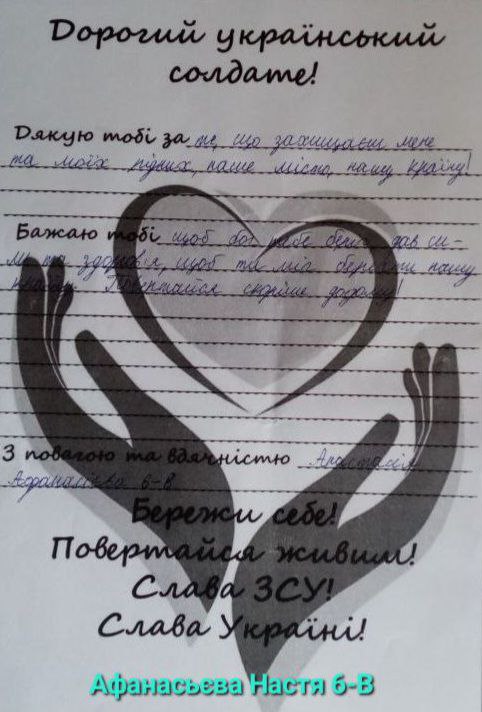 Дорогий український
солдате!
Дякую тобі за те, що захищаєш мене
та моїх рідних, наше місто, нашу країну!
Бажаю тобі щоб бог тебе беріг, дав си-
ли та здоров'я, щоб ти міг берегти нашу
країну. Повертайся скоріше додому!
З повагою та вдячністю Анастасія
Афанасієва 6-В
Бережи себе!
Повертайся живим!
Слава ЗСУ!
Слава Україні!
Афанасьєва Настя 6-В